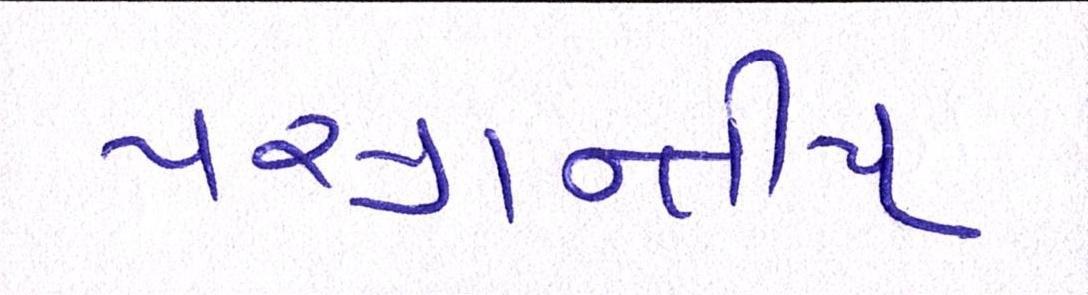 પરપ્રાન્તીય